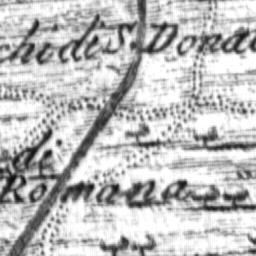 chi di S. Dona
di
Romana